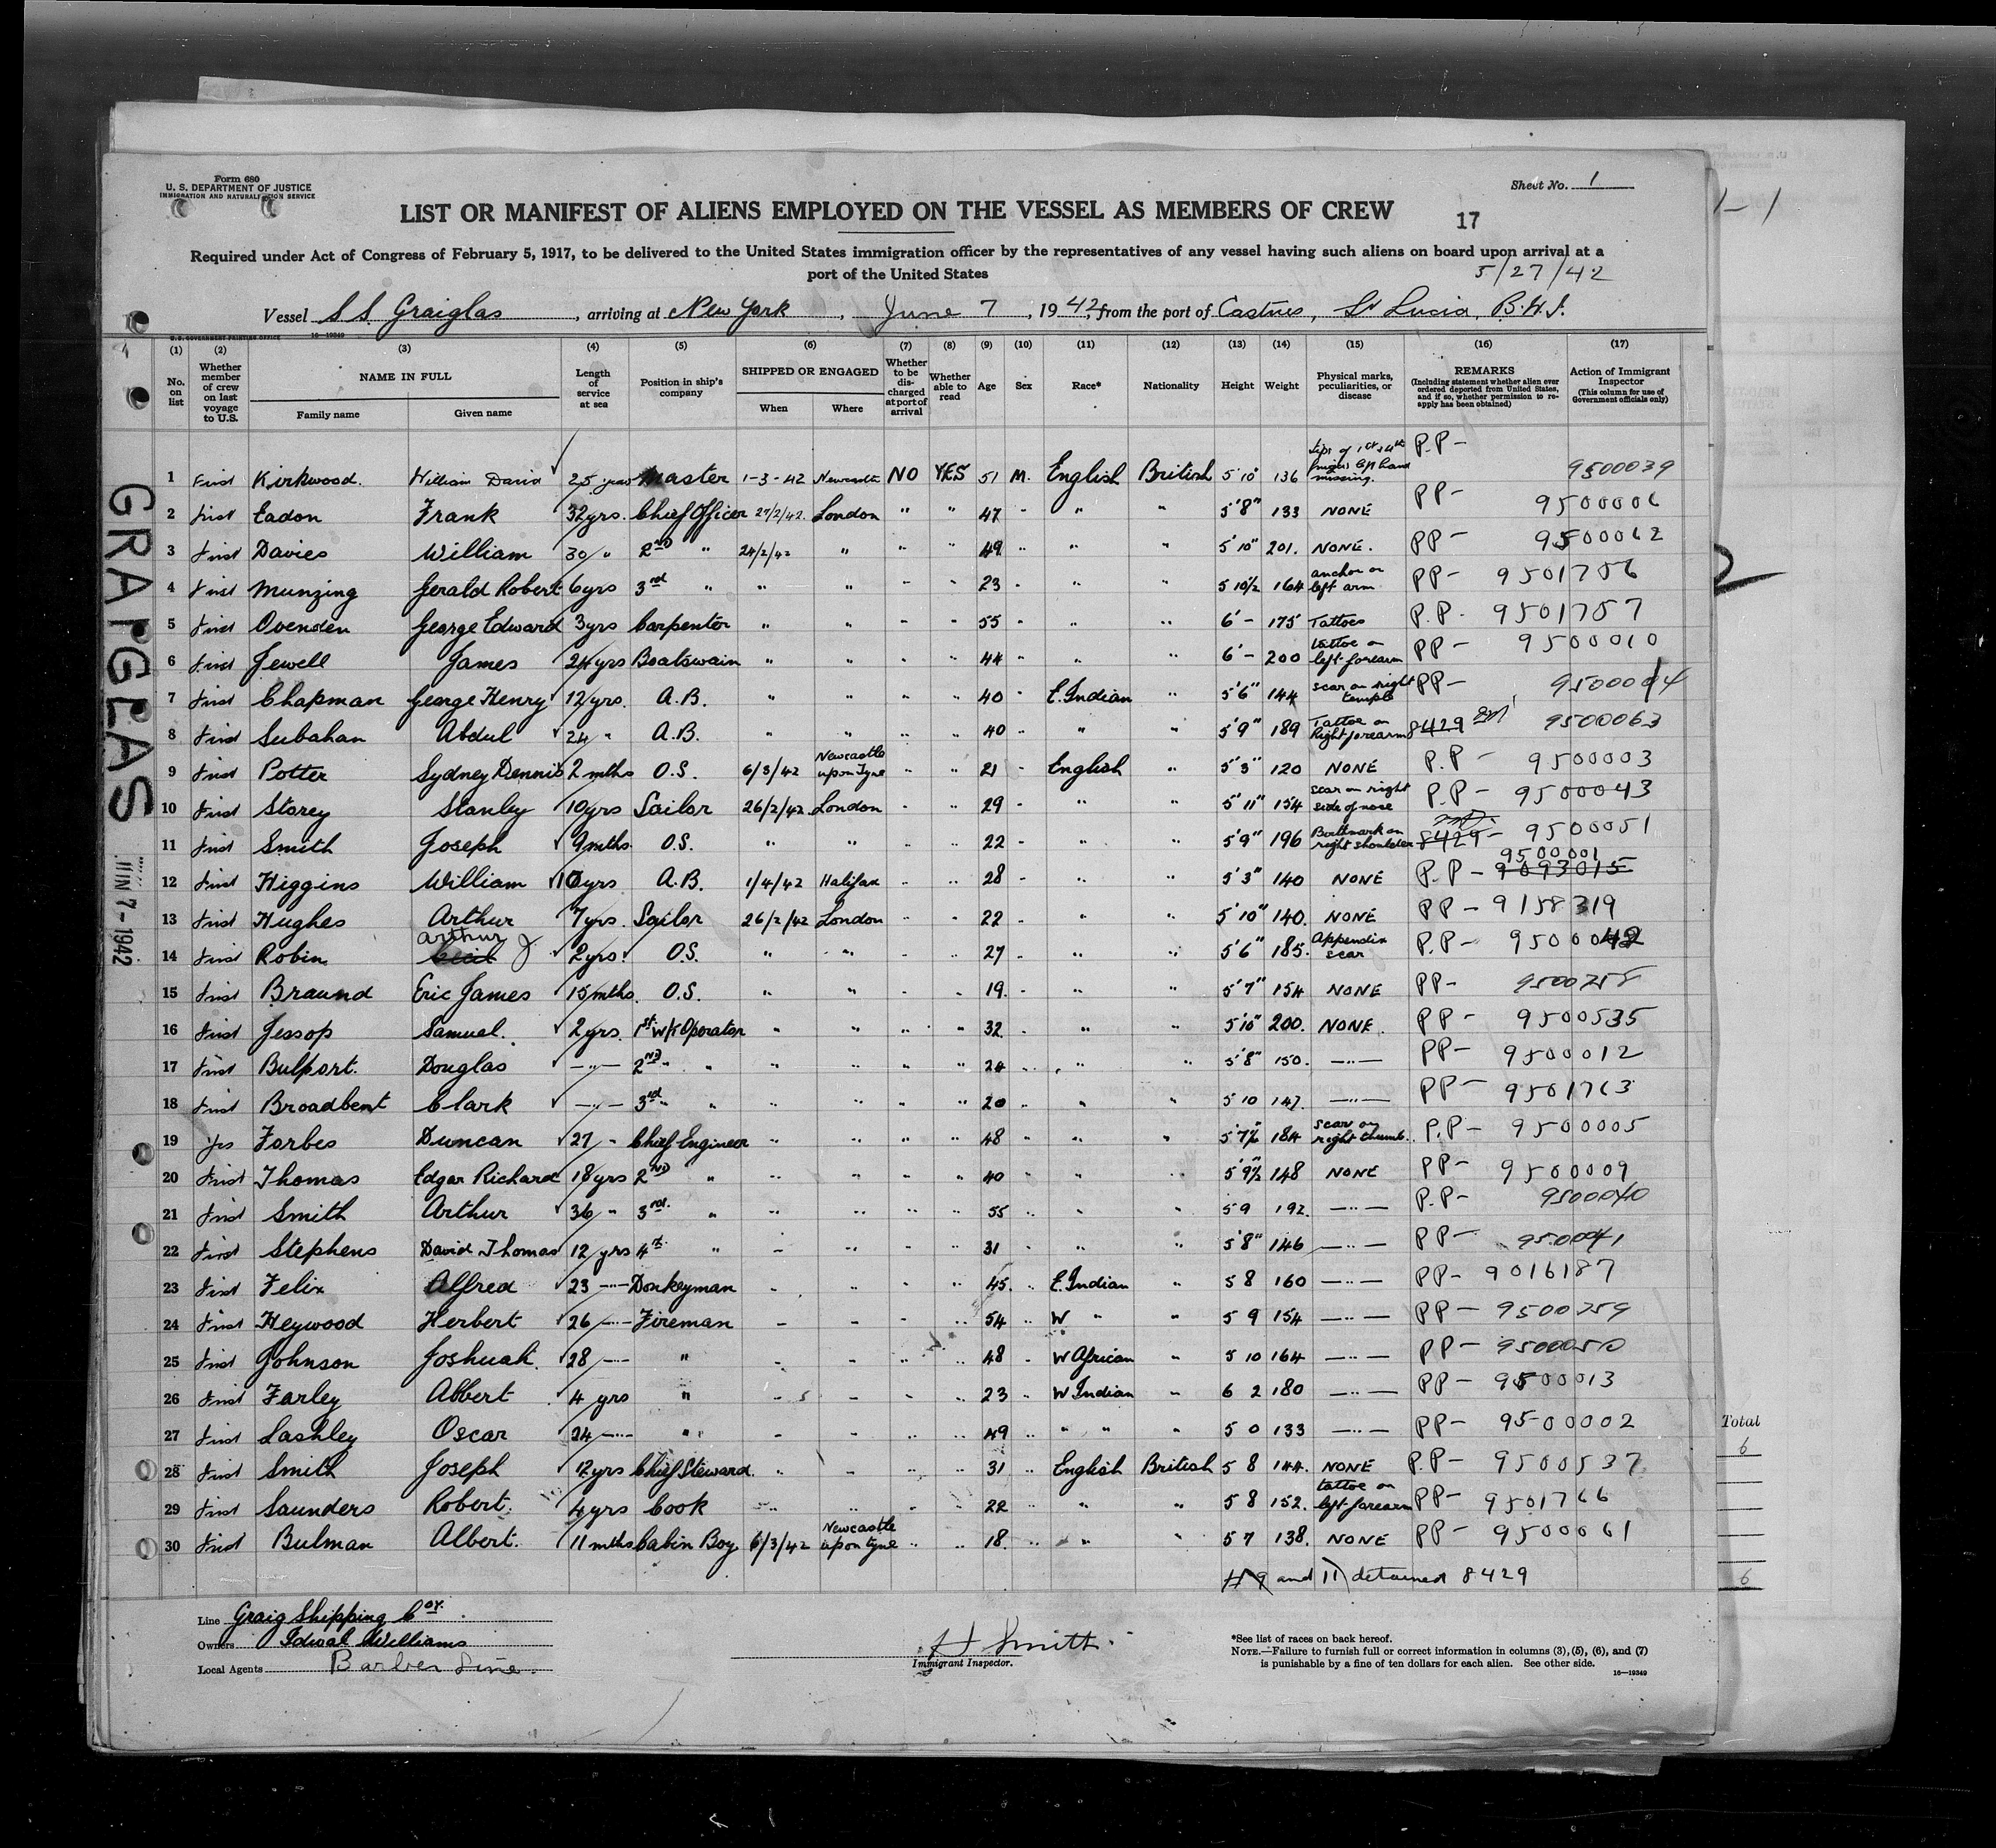 Form 680
U. S. DEPARTMENT OF JUSTICE
IMMIGRATION AND NATURALIZATION SERVICE
Sheet No. 1
LIST OR MANIFEST OF ALIENS EMPLOYED ON THE VESSEL AS MEMBERS OF CREW
17
Required under Act of Congress of February 5, 1917, to be delivered to the United States immigration officer by the representatives of any vessel having such aliens on board upon arrival at a
port of the United States
5/27/42
Vessel S S Graiglas, arriving at New York, June 7, 1942, from the port of Castries, St Lucia, B.W.I.
U.S. GOVERNMENT PRINTING OFFICE 16—19349
(1) (2) (3) (4) (5) (6) (7) (8) (9) (10) (11) (12) (13) (14) (15) (16) (17)
No. on list
Whether member of crew on last voyage to U.S.
NAME IN FULL
Family name Given name
Length of service at sea
Position in ship's company
SHIPPED OR ENGAGED
When Where
Whether to be discharged at port of arrival
Whether able to read
Age Sex Race* Nationality Height Weight
Physical marks, peculiarities, or disease
REMARKS
(Including statement whether alien ever ordered deported from United States, and if so, whether permission to reapply has been obtained)
Action of Immigrant Inspector
(This column for use of Government officials only)
1 First Kirkwood. William David 25 years Master 1-3-42 Newcastle NO YES 51 M. English British 5'10" 136 tips of 1st & 4th fingers left hand missing. P.P- 9500039
2 First Eadon Frank 32yrs. Chief Officer 27/2/42. London " " 47 - " " 5'8" 133 NONE PP- 9500006
3 First Davies William 30 " 2ND " 24/2/42 " " " 49 " " " 5'10" 201. NONE. PP- 9500062
4 First Munzing Gerald Robert 6yrs 3rd " " " " " 23 - " " 5 10½ 164 anchor on left arm PP- 9501756
5 First Ovenden George Edward 3yrs Carpenter " " " " 55 " " " 6'- 175 Tattoos P.P. 9501757
6 First Jewell James 24yrs Boatswain " " " " 44 " " " 6'- 200 tattoe on left forearm PP- 9500010
7 First Chapman George Henry 12yrs. A.B. " " " " 40 " E.Indian " 5'6" 144 scar on right temple PP- 9500014
8 First Subahan Abdul 24 " A.B. " " " " 40 " " " 5'9" 189 Tattoe on Right forearm 8429 9500063
9 First Potter Sydney Dennis 2 mths O.S. 6/3/42 Newcastle upon Tyne " " 21 - English " 5'3" 120 NONE P.P- 9500003
10 First Storey Stanley 10yrs Sailor 26/2/42 London " " 29 - " " 5'11" 154 scar on right side of nose P.P- 9500043
11 First Smith Joseph 9mths. O.S. " " " " 22 - " " 5'9" 196 Birthmark on right shoulder 8429- 9500051
12 First Higgins William 10yrs A.B. 1/4/42 Halifax " " 28 - " " 5'3" 140 NONE P.P- 9500001 9093015
13 First Hughes Arthur 7yrs. Sailor 26/2/42 London " " 22 - " " 5'10" 140. NONE PP- 9158319
14 First Robin Arthur J 2yrs. O.S. " " " " 27 - " " 5'6" 185. Appendix scar P.P- 9500042
15 First Braund Eric James 15mths. O.S. " " " " 19. " " " 5'7" 154 NONE PP- 9500258
16 First Jessop Samuel. 2yrs. 1st W/T Operator " " " " 32. " " " 5'10" 200. NONE. PP- 9500535
17 First Bulport. Douglas —"— 2ND " " " " " " 24 " " " 5'8" 150. —"— PP- 9500012
18 First Broadbent Clark —"— 3rd " " " " " " 20 " " " 5 10 147. —"— PP- 9501763
19 yes Forbes Duncan 27 " Chief Engineer " " " " 48 " " " 5'7½" 184 scar on right thumb. P.P- 9500005
20 First Thomas Edgar Richard 18yrs 2ND " " " " " 40 " " " 5'9½ 148 NONE PP- 9500009
21 First Smith Arthur 36 " 3rd. " " " " " 55 " " " 5 9 192. —"— P.P- 9500040
22 First Stephens David Thomas 12 yrs 4th. " " " " " 31 " " " 5'8" 146 —"— PP- 9500041
23 First Felix Alfred 23 —"— Donkeyman " " " " 45. " E.Indian " 5 8 160 —"— PP- 9016187
24 First Heywood Herbert 26 —"— Fireman " " " " 54 " W " " 5 9 154 —"— PP- 9500259
25 First Johnson Joshuah. 28 —"— " " " " " 48 - W African " 5 10 164 —"— PP- 9500050
26 First Farley Albert 4 yrs " " " " " 23 " W Indian " 6 2 180 —"— PP- 9500013
27 First Lashley Oscar 24 —"— " " " " " 49 " " " " 5 0 133 —"— PP- 9500002
28 First Smith Joseph 12yrs Chief Steward. " " " " 31 " English British 5 8 144. NONE P.P- 9500537
29 First Saunders Robert. 4yrs Cook " " " " 22 " " " 5 8 152. tattoe on left forearm PP- 9501766
30 First Bulman Albert. 11 mths Cabin Boy 6/3/42 Newcastle upon Tyne " " 18. " " " 5 7 138. NONE PP- 9500061
# 9 and 11 detained 8429
GRAIGLAS
JUN 7-1942
Total
6
6
Line Graig Shipping Coy.
Owners Idwal Williams
Local Agents Barber Line.
H Smith.
Immigrant Inspector.
*See list of races on back hereof.
NOTE.—Failure to furnish full or correct information in columns (3), (5), (6), and (7)
is punishable by a fine of ten dollars for each alien. See other side.
16—19349